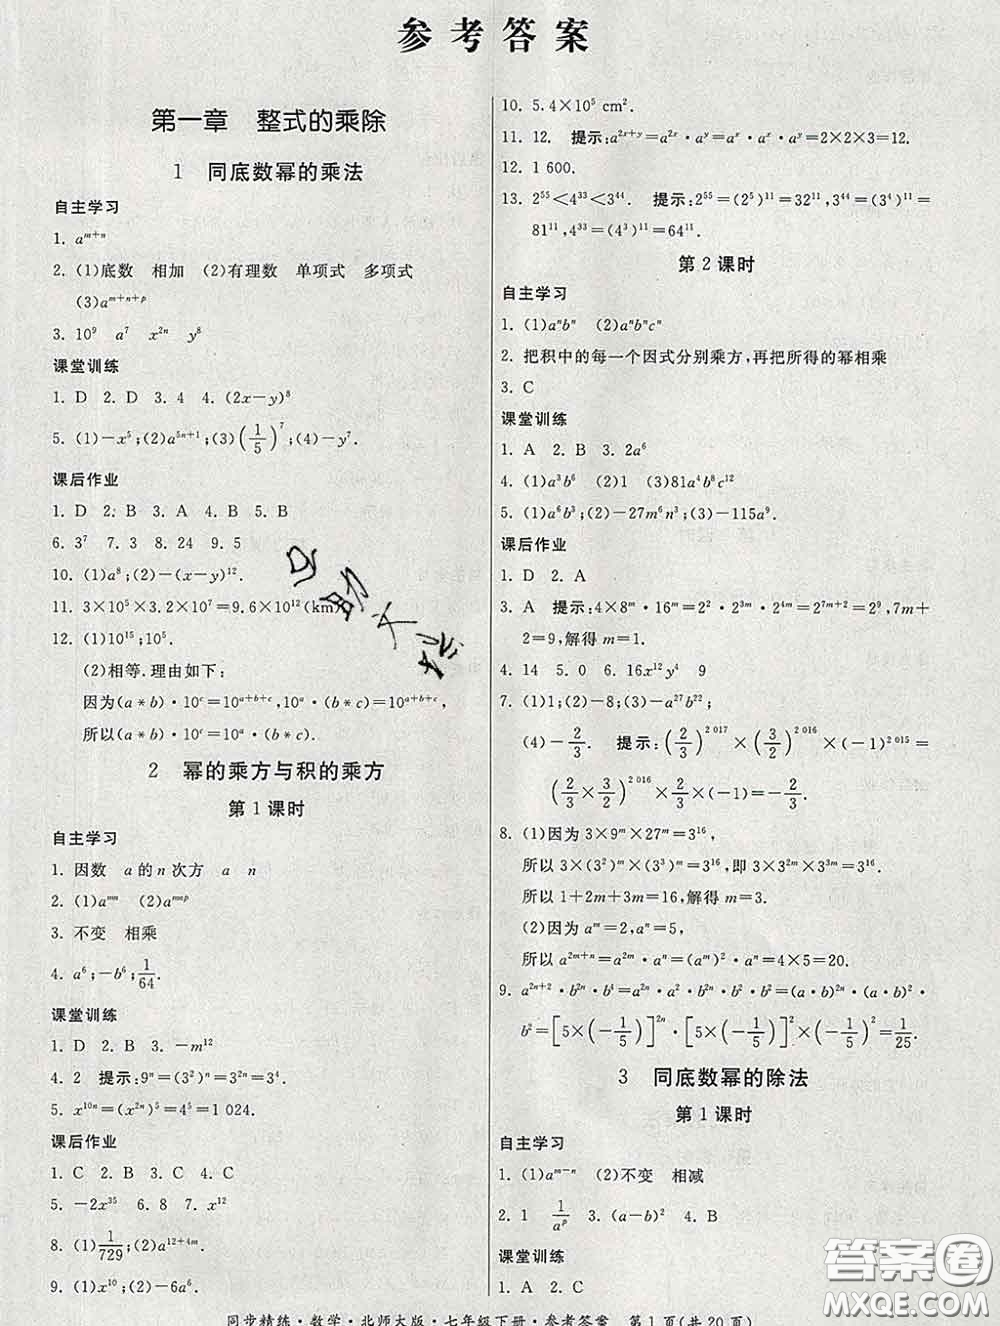 参考答案
第一章　整式的乘除
1　同底数幂的乘法
自主学习
1. a^{m+n}
2. (1)底数　相加　(2)有理数　单项式　多项式
(3)a^{m+n+p}
3. 10^9　a^7　x^{2n}　y^8
课堂训练
1. D　2. D　3. 4　4. (2x－y)^8
5. (1)－x^5;(2)a^{5n+1};(3)(1/5)^7;(4)－y^7.
课后作业
1. D　2. B　3. A　4. B　5. B
6. 3^7　7. 3　8. 24　9. 5
10. (1)a^8;(2)－(x－y)^{12}.
11. 3×10^5×3.2×10^7＝9.6×10^{12}(km)
12. (1)10^{15};10^5.
(2)相等.理由如下:
因为(a*b)·10^c＝10^{a+b+c},10^a·(b*c)＝10^{a+b+c},
所以(a*b)·10^c＝10^a·(b*c).
2　幂的乘方与积的乘方
第1课时
自主学习
1. 因数　a的n次方　a　n
2. (1)a^{mn}　(2)a^{mnp}
3. 不变　相乘
4. a^6;－b^6;1/64.
课堂训练
1. D　2. B　3. －m^{12}
4. 2　提示:9^n＝(3^2)^n＝3^{2n}＝3^4.
5. x^{10n}＝(x^{2n})^5＝4^5＝1 024.
课后作业
1. C　2. B　3. C　4. C
5. －2x^{35}　6. 8　7. x^{12}
8. (1)1/729;(2)a^{12+4m}.
9. (1)x^{10};(2)－6a^6.
10. 5.4×10^5 cm^2.
11. 12.　提示:a^{2x+y}＝a^{2x}·a^y＝a^x·a^x·a^y＝2×2×3＝12.
12. 1 600.
13. 2^{55}＜4^{33}＜3^{44}.　提示:2^{55}＝(2^5)^{11}＝32^{11},3^{44}＝(3^4)^{11}＝
81^{11},4^{33}＝(4^3)^{11}＝64^{11}.
第2课时
自主学习
1. (1)a^nb^n　(2)a^nb^nc^n
2. 把积中的每一个因式分别乘方,再把所得的幂相乘
3. C
课堂训练
1. A　2. B　3. 2a^6
4. (1)a^3b^6　(2)1　(3)81a^4b^8c^{12}
5. (1)a^6b^3;(2)－27m^6n^3;(3)－115a^9.
课后作业
1. D　2. A
3. A　提示:4×8^m·16＝2^2·2^{3m}·2^4＝2^{7m+2}＝2^9,7m＋
2＝9,解得m＝1.
4. 14　5. 0　6. 16x^{12}y^4　9
7. (1)1;(2)－8;(3)－a^{27}b^{22};
(4)－2/3.　提示:(2/3)^{2 017}×(3/2)^{2 016}×(－1)^{2 015}＝
(2/3×3/2)^{2 016}×2/3×(－1)＝－2/3.
8. (1)因为3×9^m×27^m＝3^{16},
所以3×(3^2)^m×(3^3)^m＝3^{16},即3×3^{2m}×3^{3m}＝3^{16}.
所以1＋2m＋3m＝16,解得m＝3.
(2)因为a^m＝2,a^n＝5,
所以a^{2m+n}＝a^{2m}·a^n＝(a^m)^2·a^n＝4×5＝20.
9. a^{2n+2}·b^{2n}·b^4＝a^{2n}·a^2·b^{2n}·b^2·b^2＝(a·b)^{2n}·(a·b)^2·
b^2＝[5×(－1/5)]^{2n}·[5×(－1/5)]^2×(－1/5)^2＝1/25.
3　同底数幂的除法
第1课时
自主学习
1. (1)a^{m－n}　(2)不变　相减
2. 1　1/a^p　3. (a－b)^2　4. B
课堂训练
1. A　2. C
同步精练·数学·北师大版·七年级下册·参考答案　第1页(共20页)
答案圈
MXQE.COM